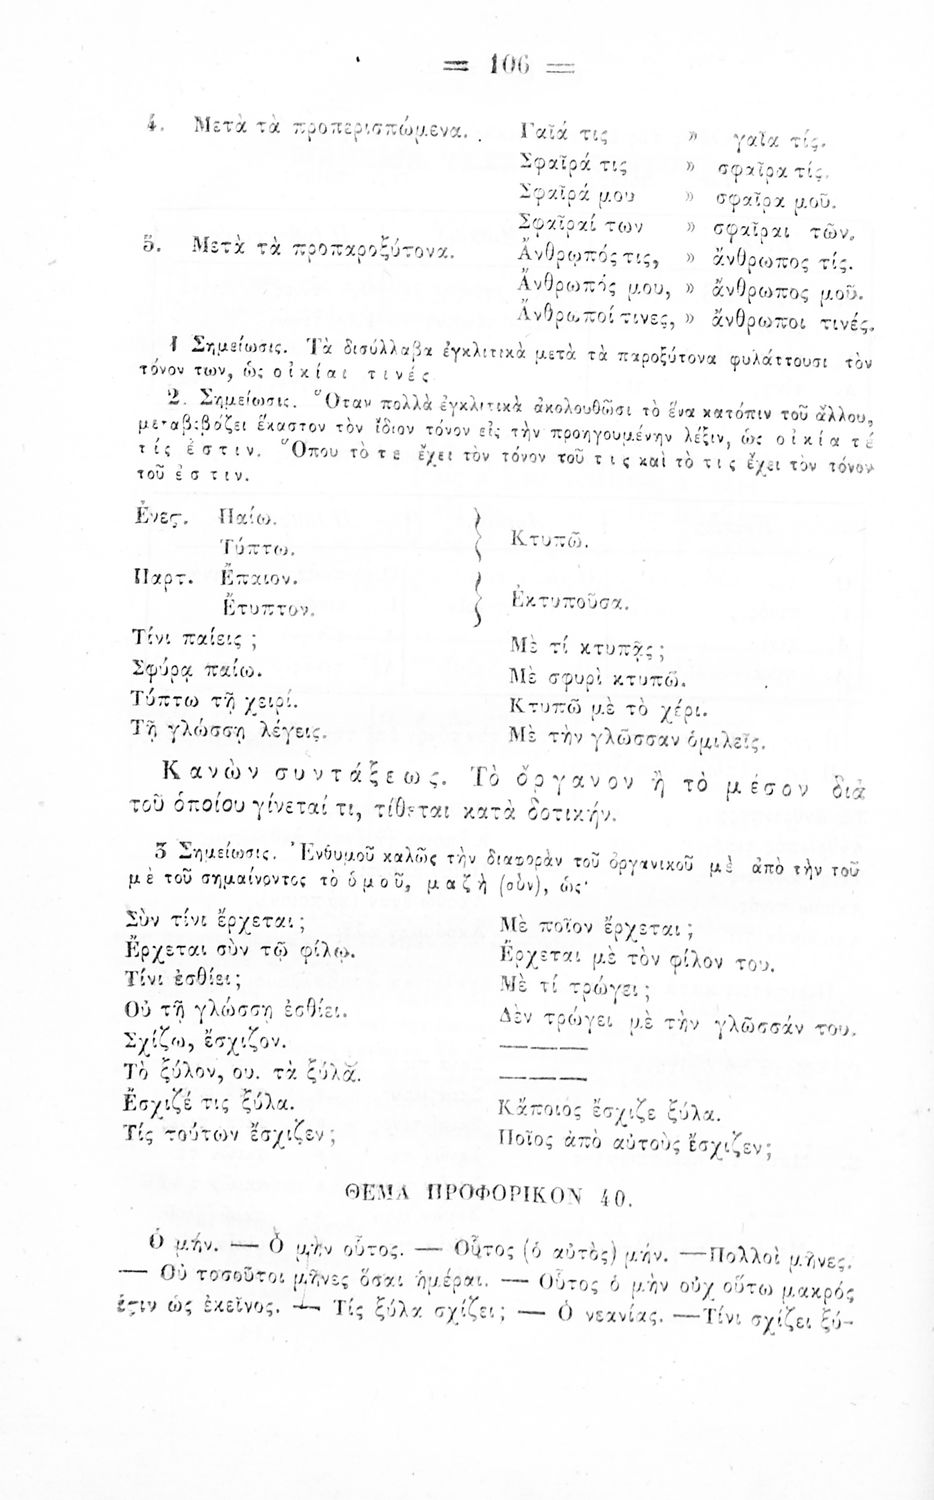 = 106 =
4. Μετὰ τὰ προπερισπώμενα. Γαῖά τις » γαῖα τίς.
Σφαῖρά τις » σφαῖρα τίς.
Σφαῖρά μου » σφαῖρα μοῦ.
Σφαῖραί των » σφαῖραι τῶν.
5. Μετὰ τὰ προπαροξύτονα. Ἄνθρωπός τις, » ἄνθρωπος τίς.
Ἄνθρωπός μου, » ἄνθρωπος μοῦ.
Ἄνθρωποί τινες, » ἄνθρωποι τινές.
1 Σημείωσις. Τὰ δισύλλαβα ἐγκλιτικὰ μετὰ τὰ παροξύτονα φυλάττουσι τὸν
τόνον των, ὡς οἰκίαι τινές
2. Σημείωσις. Ὅταν πολλὰ ἐγκλιτικὰ ἀκολουθῶσι τὸ ἕνα κατόπιν τοῦ ἄλλου,
μεταβιβάζει ἕκαστον τὸν ἴδιον τόνον εἰς τὴν προηγουμένην λέξιν, ὡς οἰκία τέ
τίς ἐστιν. Ὅπου τὸ τε ἔχει τὸν τόνον τοῦ τις καὶ τὸ τις ἔχει τὸν τόνον
τοῦ ἐστιν.
Ἐνεστ. Παίω.
Τύπτω. Κτυπῶ.
Παρτ. Ἔπαιον.
Ἔτυπτον. Ἐκτυποῦσα.
Τίνι παίεις ; Μὲ τί κτυπᾷς ;
Σφύρᾳ παίω. Μὲ σφυρὶ κτυπῶ.
Τύπτω τῇ χειρί. Κτυπῶ μὲ τὸ χέρι.
Τῇ γλώσσῃ λέγεις. Μὲ τὴν γλῶσσαν ὁμιλεῖς.
Κανὼν συντάξεως. Τὸ ὄργανον ἢ τὸ μέσον διὰ
τοῦ ὁποίου γίνεταί τι, τίθεται κατὰ δοτικήν.
3 Σημείωσις. Ἐνθυμοῦ καλῶς τὴν διαφορὰν τοῦ ὀργανικοῦ μὲ ἀπὸ τὴν τοῦ
μὲ τοῦ σημαίνοντος τὸ ὁμοῦ, μαζὴ (σὺν), ὡς·
Σὺν τίνι ἔρχεται ; Μὲ ποῖον ἔρχεται ;
Ἔρχεται σὺν τῷ φίλῳ. Ἔρχεται μὲ τὸν φίλον του.
Τίνι ἐσθίει ; Μὲ τί τρώγει ;
Οὐ τῇ γλώσσῃ ἐσθίει. Δὲν τρώγει μὲ τὴν γλῶσσάν του.
Σχίζω, ἔσχιζον. ———
Τὸ ξύλον, ου. τὰ ξύλᾰ. ———
Ἔσχιζέ τις ξύλα. Κἄποιος ἔσχιζε ξύλα.
Τίς τούτων ἔσχιζεν ; Ποῖος ἀπὸ αὐτοὺς ἔσχιζεν ;
ΘΕΜΑ ΠΡΟΦΟΡΙΚΟΝ 40.
Ὁ μήν. — Ὁ μὴν οὗτος. — Οὗτος (ὁ αὐτὸς) μήν. — Πολλοὶ μῆνες.
— Οὐ τοσοῦτοι μῆνες ὅσαι ἡμέραι. — Οὗτος ὁ μὴν οὐχ οὕτω μακρός
ἐστιν ὡς ἐκεῖνος. — Τίς ξύλα σχίζει ; — Ὁ νεανίας. — Τίνι σχίζει ξύ-